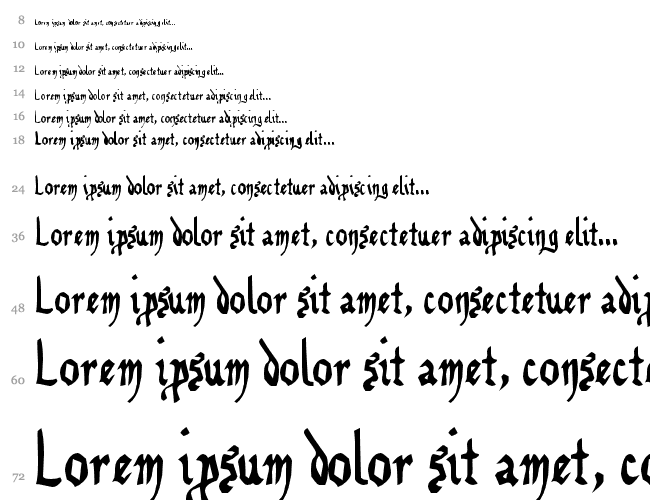 8 Lorem ipsum dolor sit amet, consectetuer adipiscing elit...
10 Lorem ipsum dolor sit amet, consectetuer adipiscing elit...
12 Lorem ipsum dolor sit amet, consectetuer adipiscing elit...
14 Lorem ipsum dolor sit amet, consectetuer adipiscing elit...
16 Lorem ipsum dolor sit amet, consectetuer adipiscing elit...
18 Lorem ipsum dolor sit amet, consectetuer adipiscing elit...
24 Lorem ipsum dolor sit amet, consectetuer adipiscing elit...
36 Lorem ipsum dolor sit amet, consectetuer adipiscing elit...
48 Lorem ipsum dolor sit amet, consectetuer adip
60 Lorem ipsum dolor sit amet, consect
72 Lorem ipsum dolor sit amet, co